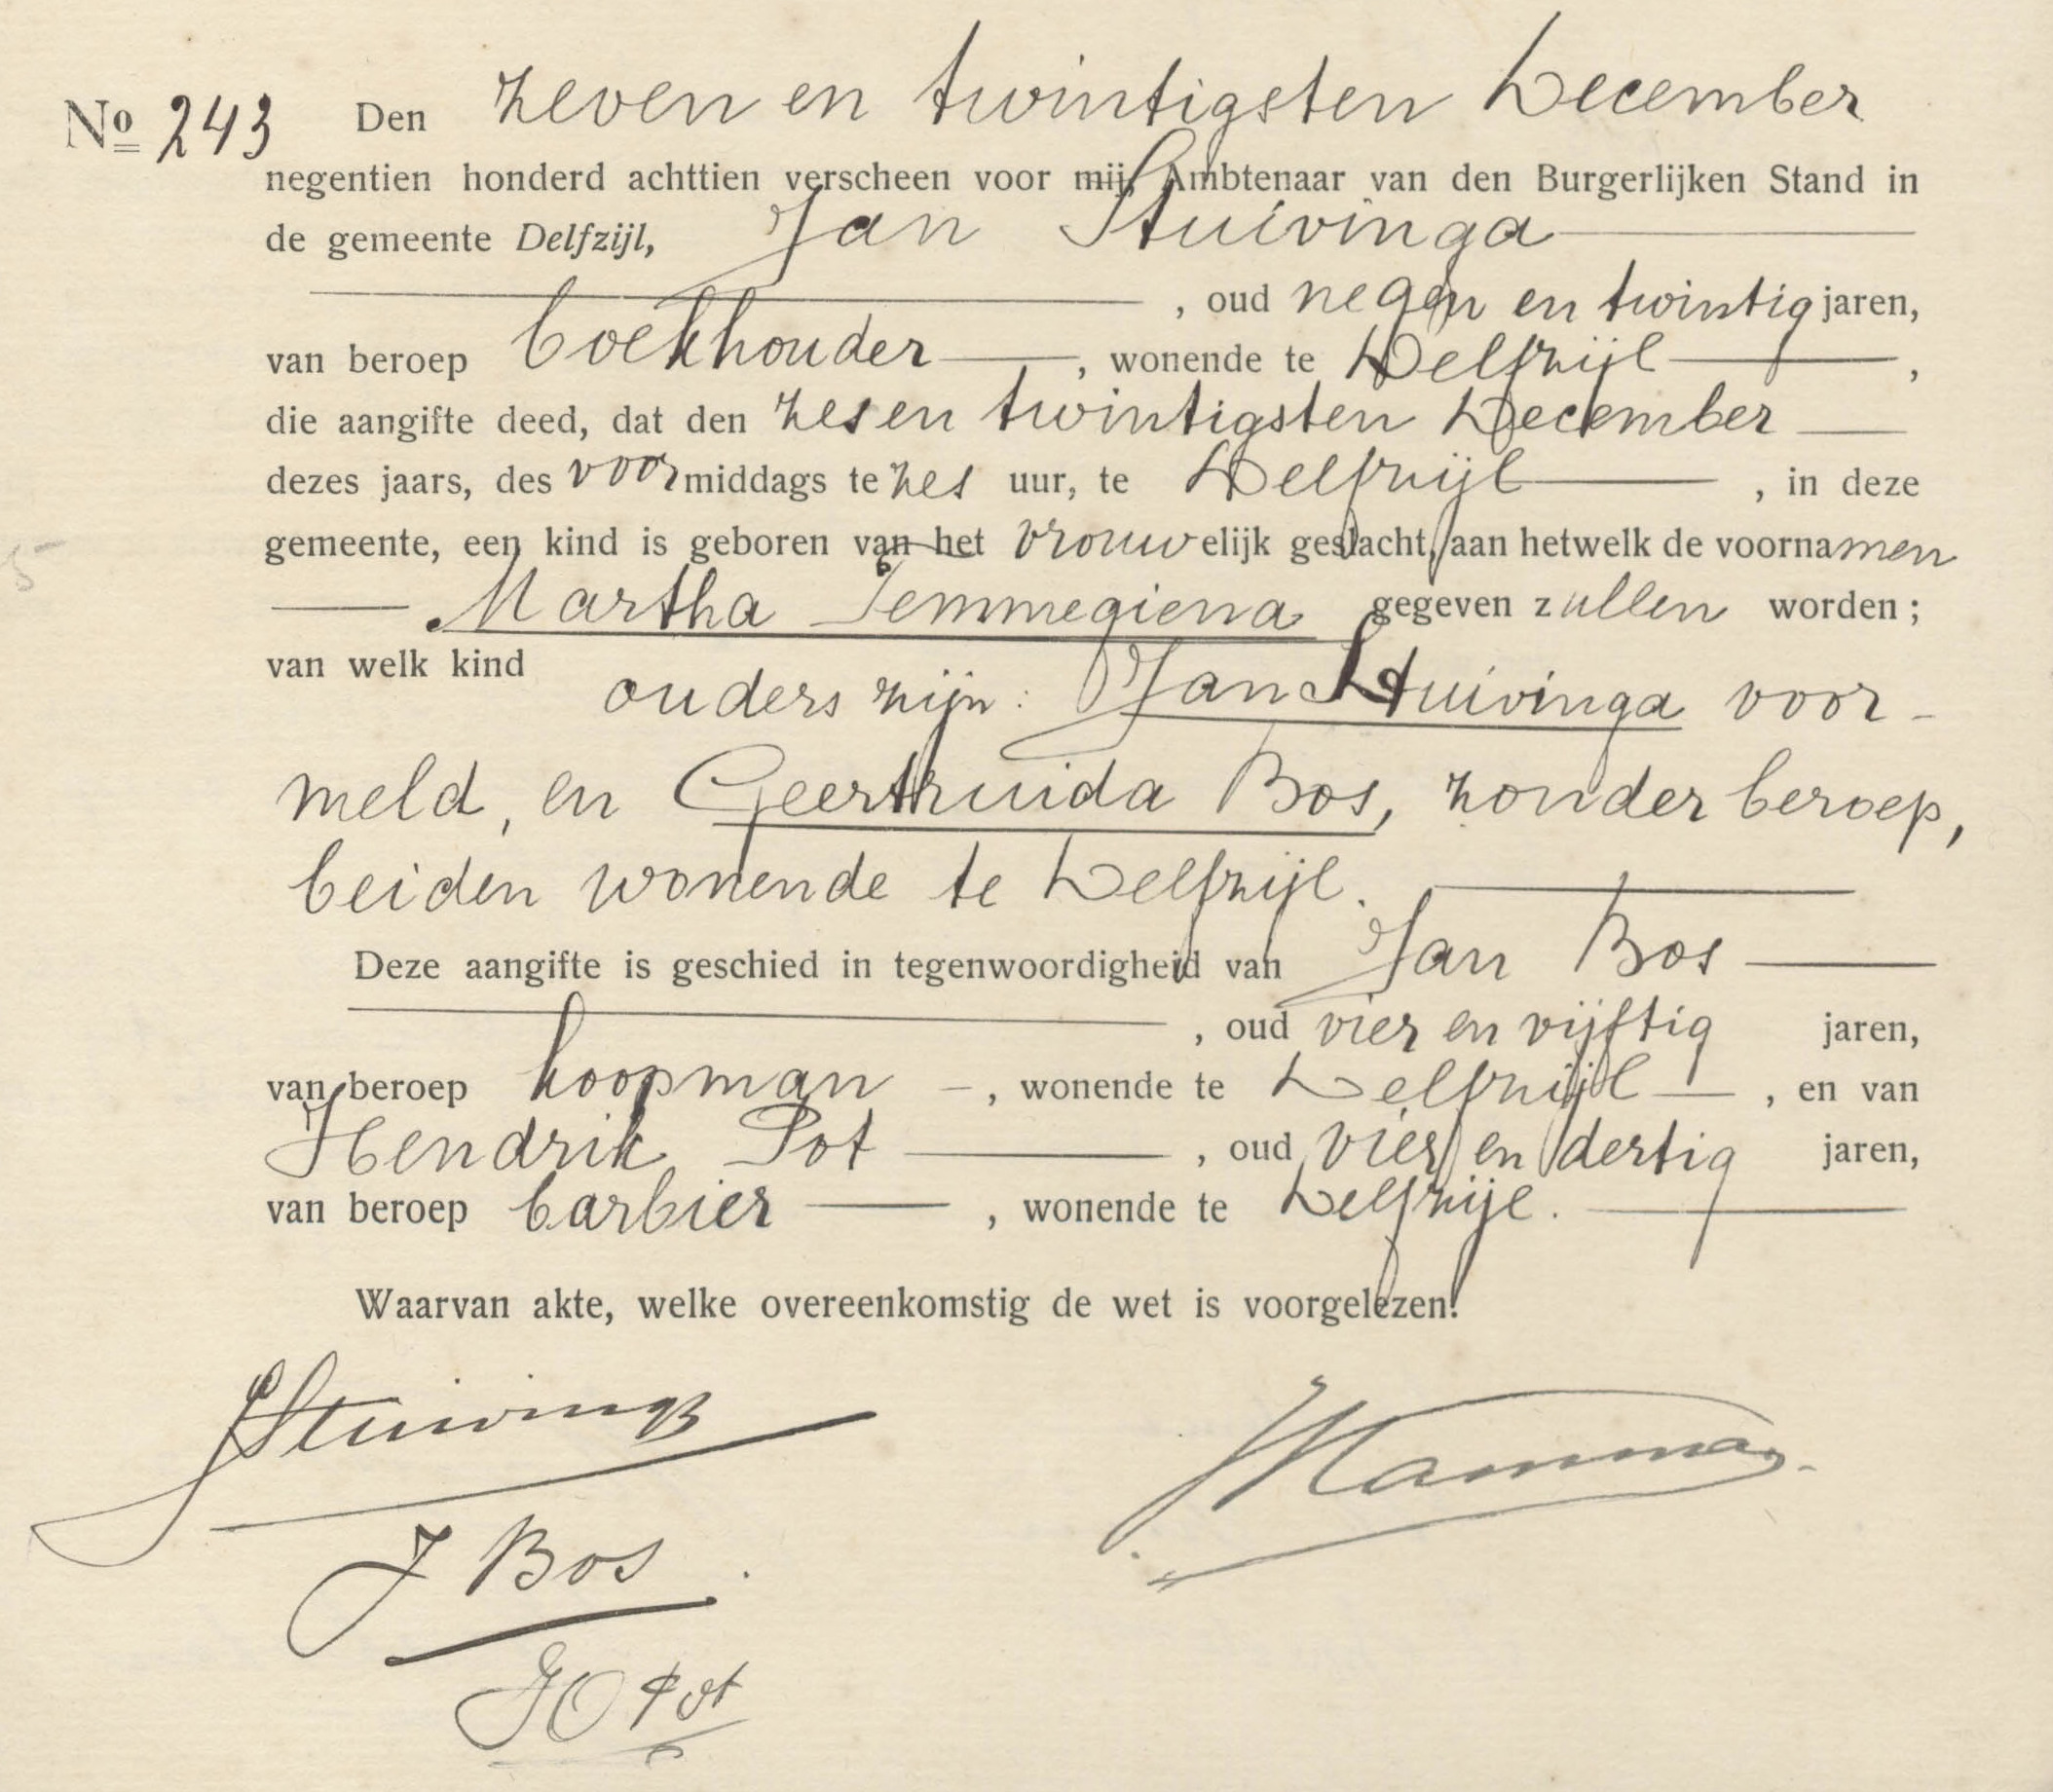 No 243 Den zeven en twintigsten December
negentien honderd achttien verscheen voor mij, Ambtenaar van den Burgerlijken Stand in
de gemeente Delfzijl, Jan Stuivinga
, oud negen en twintig jaren,
van beroep boekhouder, wonende te Delfzijl,
die aangifte deed, dat den zes en twintigsten December
dezes jaars, des voormiddags te zes uur, te Delfzijl, in deze
gemeente, een kind is geboren van het vrouwelijk geslacht, aan hetwelk de voornamen
Martha Temmegiena gegeven zullen worden;
van welk kind ouders zijn: Jan Stuivinga voor-
meld, en Geertruida Bos, zonder beroep,
beiden wonende te Delfzijl.
Deze aangifte is geschied in tegenwoordigheid van Jan Bos
, oud vier en vijftig jaren,
van beroep koopman -, wonende te Delfzijl, en van
Hendrik Pot, oud vier en dertig jaren,
van beroep barbier, wonende te Delfzijl.
Waarvan akte, welke overeenkomstig de wet is voorgelezen.
JStuivinga
J Bos
Pot